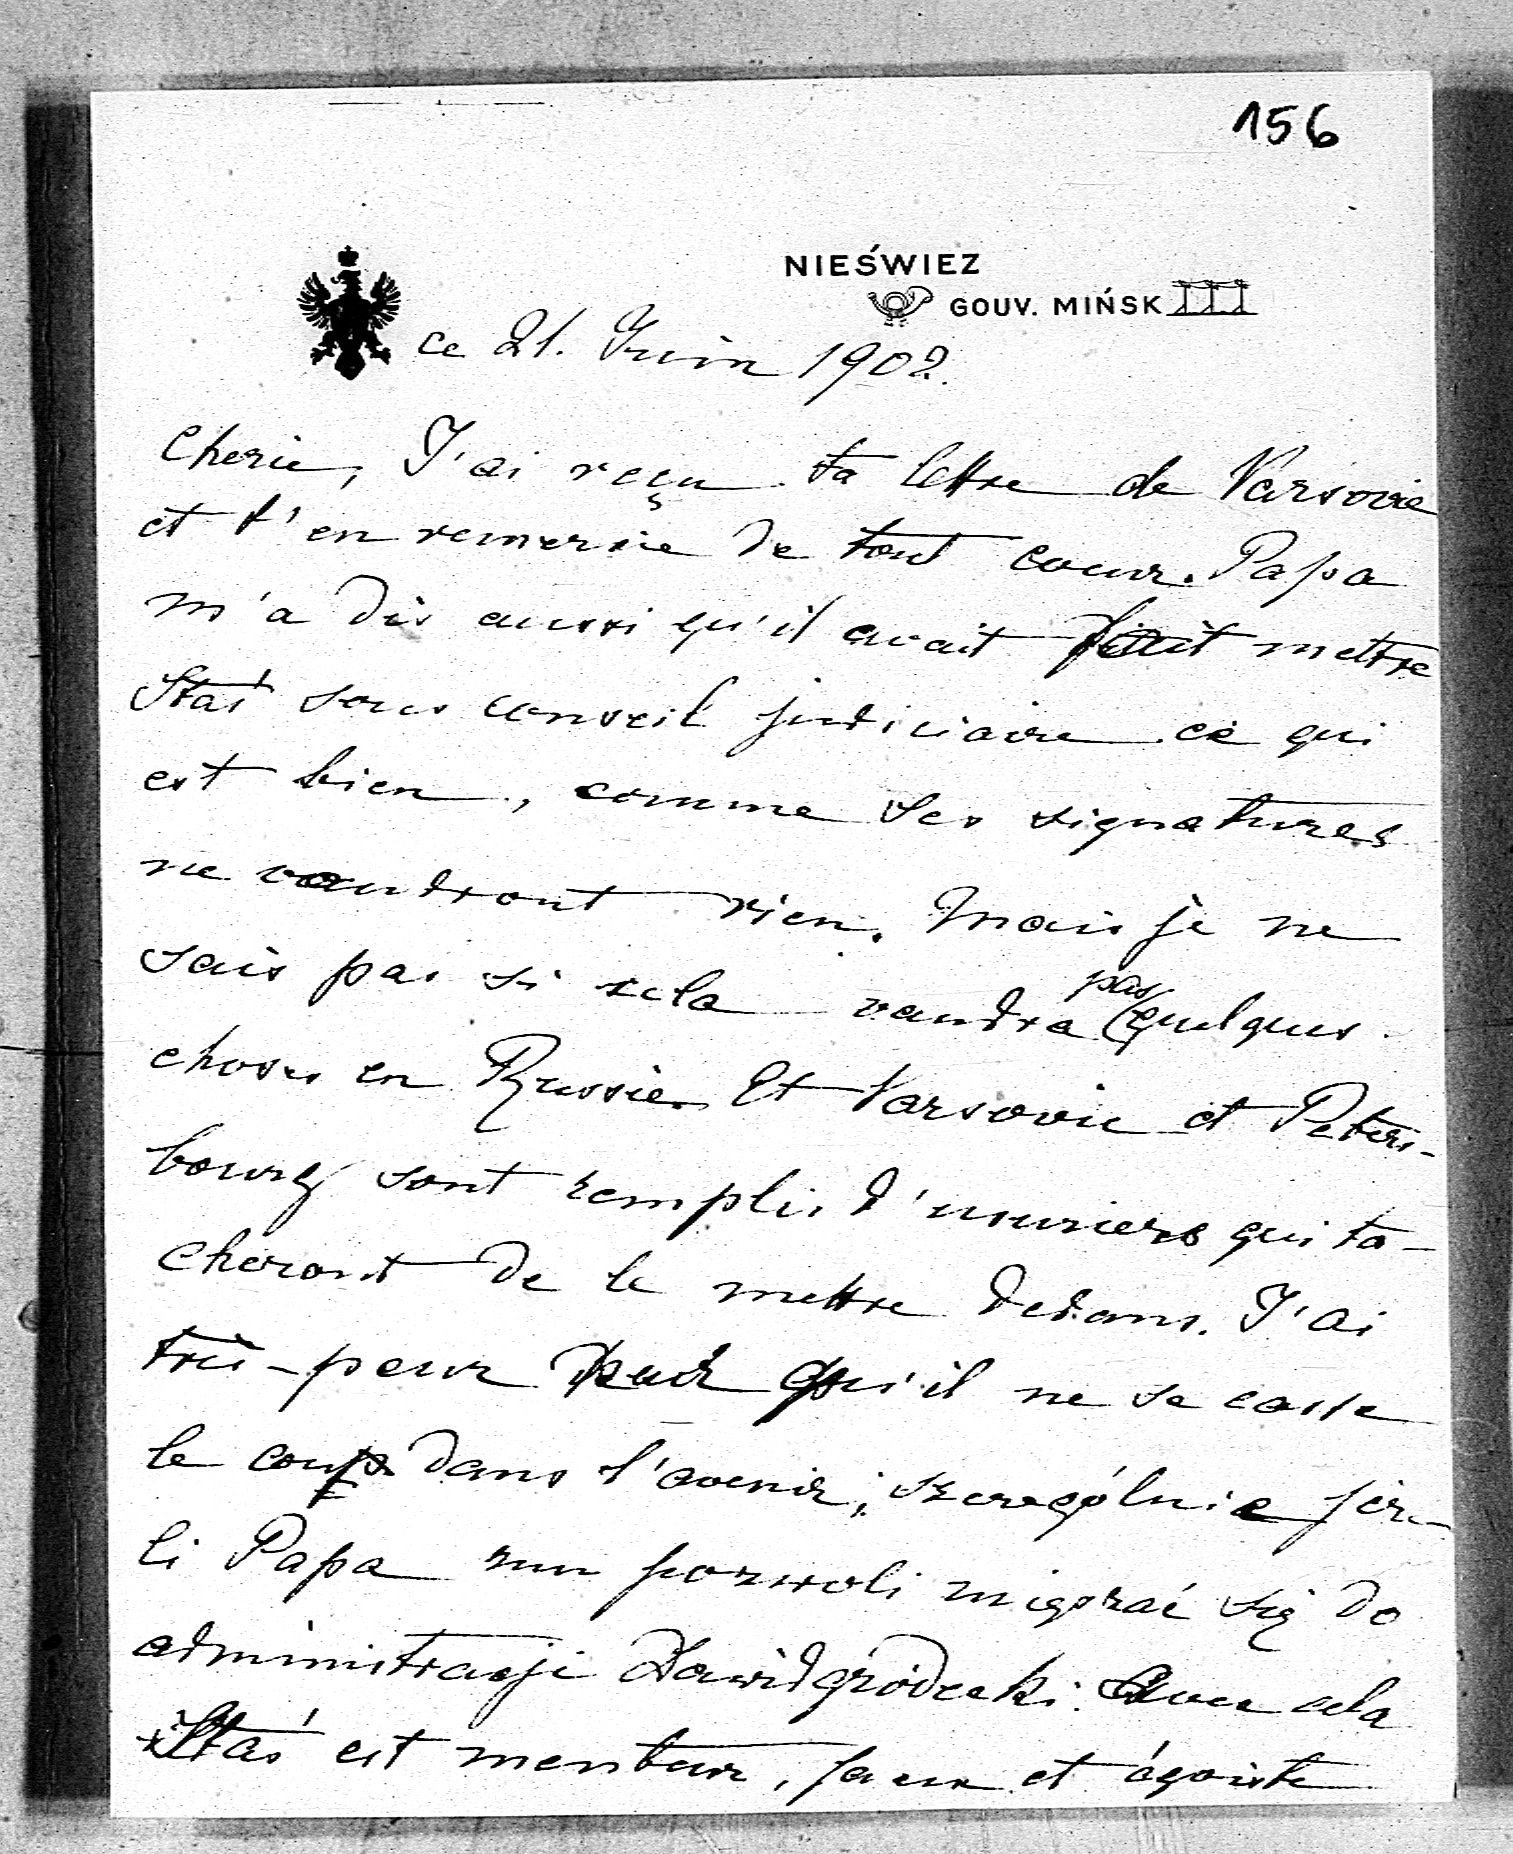 156
NIEŚWIEZ
GOUV. MIŃSK
ce 21. Juin 1902.
Cherie, J'ai reçu ta lettre de Varsovie
et t'en remercie de tout coeur. Papa
m'a dis aussi qu'il avait fait mettre
Staś sous conseil judiciaire ce qui
est bien, comme ses signatures
ne vaudront rien. Mais je ne
sais pas si cela vaudra pas quelques
choses en Russie. Et Varsovie et Peters-
bourg sont remplis d'usuriers qui ta-
cheront de le mettre dedans. J'ai
très-peur qu'il ne se casse
le cou dans l'avenir, szczególnie jeże-
li Papa mu pozwoli mięszać się do
administracji Dawidgródecki. Avec cela
Staś est menteur, faux et égoiste